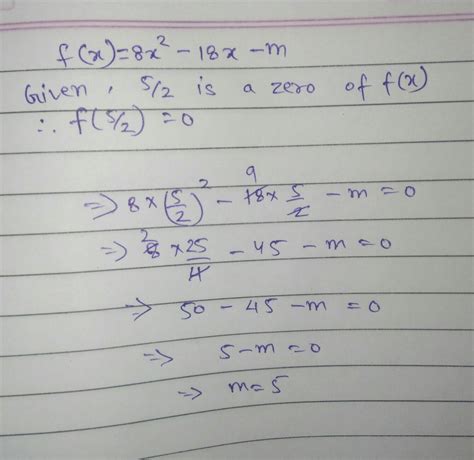 f(x)=8x² - 18x - m
Given, 5/2 is a zero of f(x)
∴ f(5/2) = 0
⇒ 8 × (5/2)² - 18 × 5/2 - m = 0 9
⇒ 8 × 25/4 - 45 - m = 0 2
⇒ 50 - 45 - m = 0
⇒ 5 - m = 0
⇒ m = 5